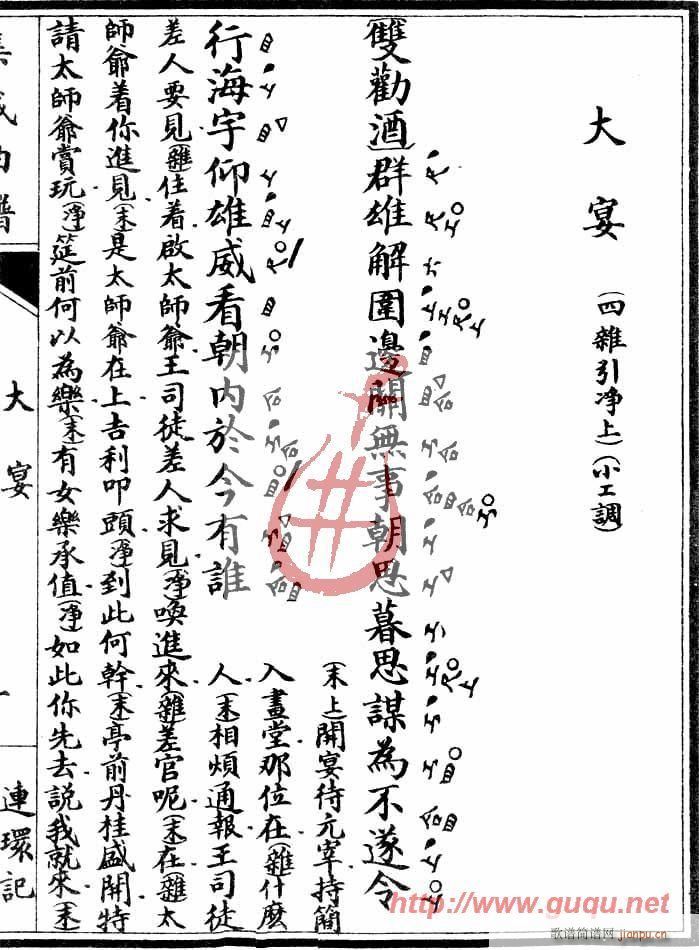 大宴 (四雜引净上)(小工調)
(雙勸酒)群雄解圍邊關無事朝思暮思謀為不遂令
行海宇仰雄威看朝內於今有誰
(末上)開宴待元宰持簡
入畫堂那位在(雜)什麽
人(末)相煩通報王司徒
差人要見(雜)住着啟太師爺王司徒差人求見(净)喚進來(雜)差官呢(末)在(雜)太
師爺着你進見(末)是太師爺在上吉利叩頭(净)到此何幹(末)亭前丹桂盛開特
請太師爺賞玩(净)筵前何以為樂(末)有女樂承值(净)如此你先去說我就來(末)
大宴
一
連環記
http://www.guqu.net
歌谱简谱网
jianpu.cn